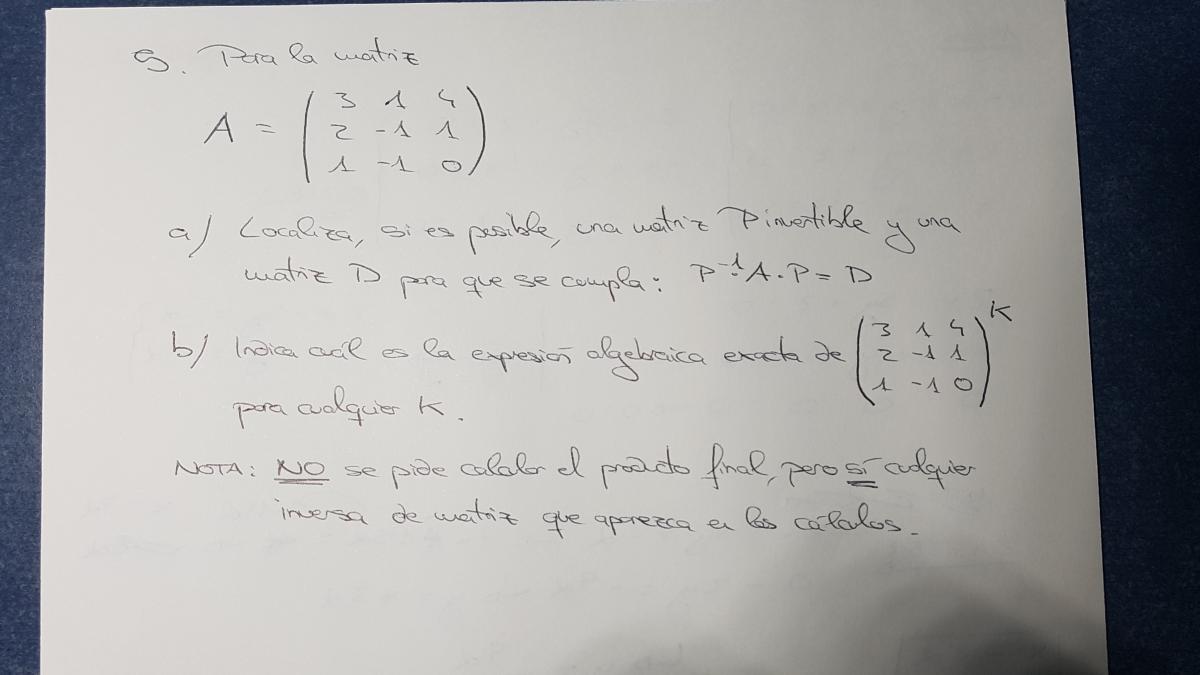 5. Para la matriz
A = ( 3 1 4
2 -1 1
1 -1 0 )
a) Localiza, si es posible, una matriz P invertible y una
matriz D para que se cumpla: P⁻¹·A·P = D
b) Indica cuál es la expresión algebraica exacta de ( 3 1 4
2 -1 1
1 -1 0 )ᴷ
para cualquier K.
NOTA: NO se pide calcular el producto final, pero sí cualquier
inversa de matriz que aparezca en los cálculos.